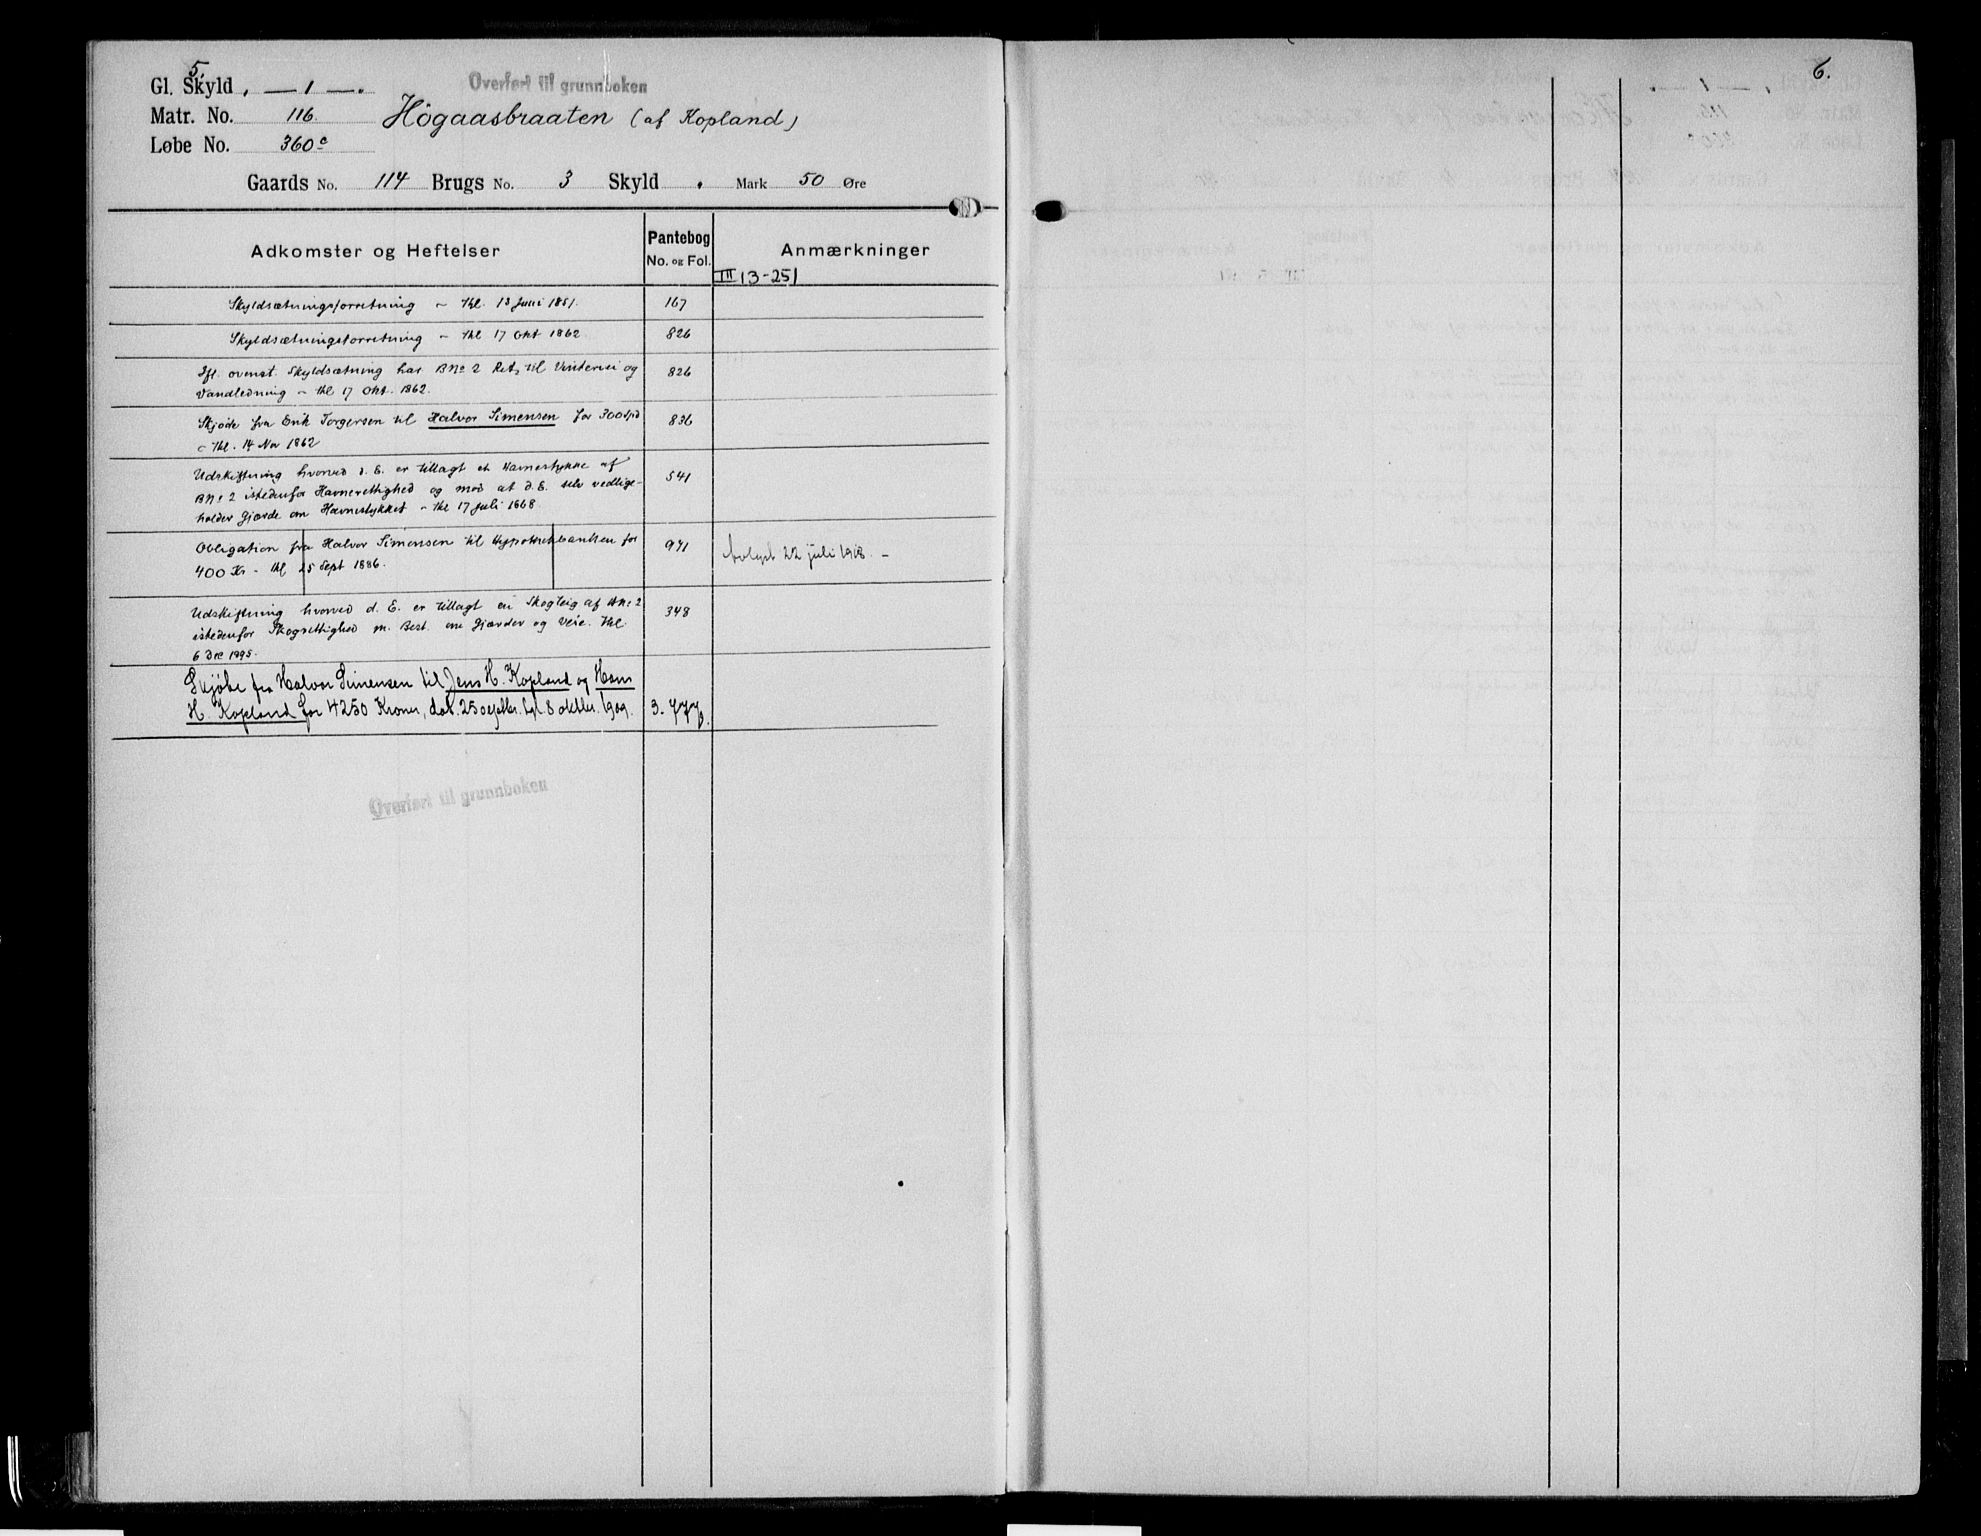 5.
Gl. Skyld . — 1 — .
Overført til grunnboken
Matr. No. 116.
Högaasbraaten (af Kopland)
Løbe No. 360c
Gaards No. 114 Brugs No. 3 Skyld . Mark 50 Øre
Adkomster og Heftelser
Pantebog
No. og Fol.
Anmærkninger
III 13-251
Skyldsætningsforretning – thl. 13 Juni 1851. 167
Skyldsætningsforretning – thl 17 Okt 1862. 826
Ifl. ovenst. Skyldsætning har BNo 2 Ret til Vintervei og 826
Vandledning – thl 17 Okt. 1862.
Skjöde fra Erik Torgersen til Halvor Simensen for 300 Spd 836
– thl. 14 Nov 1862
Udskiftning hvorved d. E. er tillagt et Havnestykke af 541
BNo 2 istedenfor Havnerettighed og mod at d. E. selv vedlige-
holder Gjærde om Havnestykket – thl 17 Juli 1868
Obligation fra Halvor Simensen til Hypothekbanken for 971 Avlyst 22 juli 1918. –
400 Kr – thl 25 Sept 1886.
Udskiftning hvorved d. E. er tillagt en Skogteig af BNo 2 348
istedenfor Skogrettighed m. Best. om Gjærder og Veie. Thl.
6 Dec 1895.
Skjöte fra Halvor Simensen til Jens H. Kopland og Hans
H. Kopland for 4250 Kroner, dat. 25 septbr. tgl. 8 oktbr. 1909. 3. 777.
Overført til grunnboken
6.